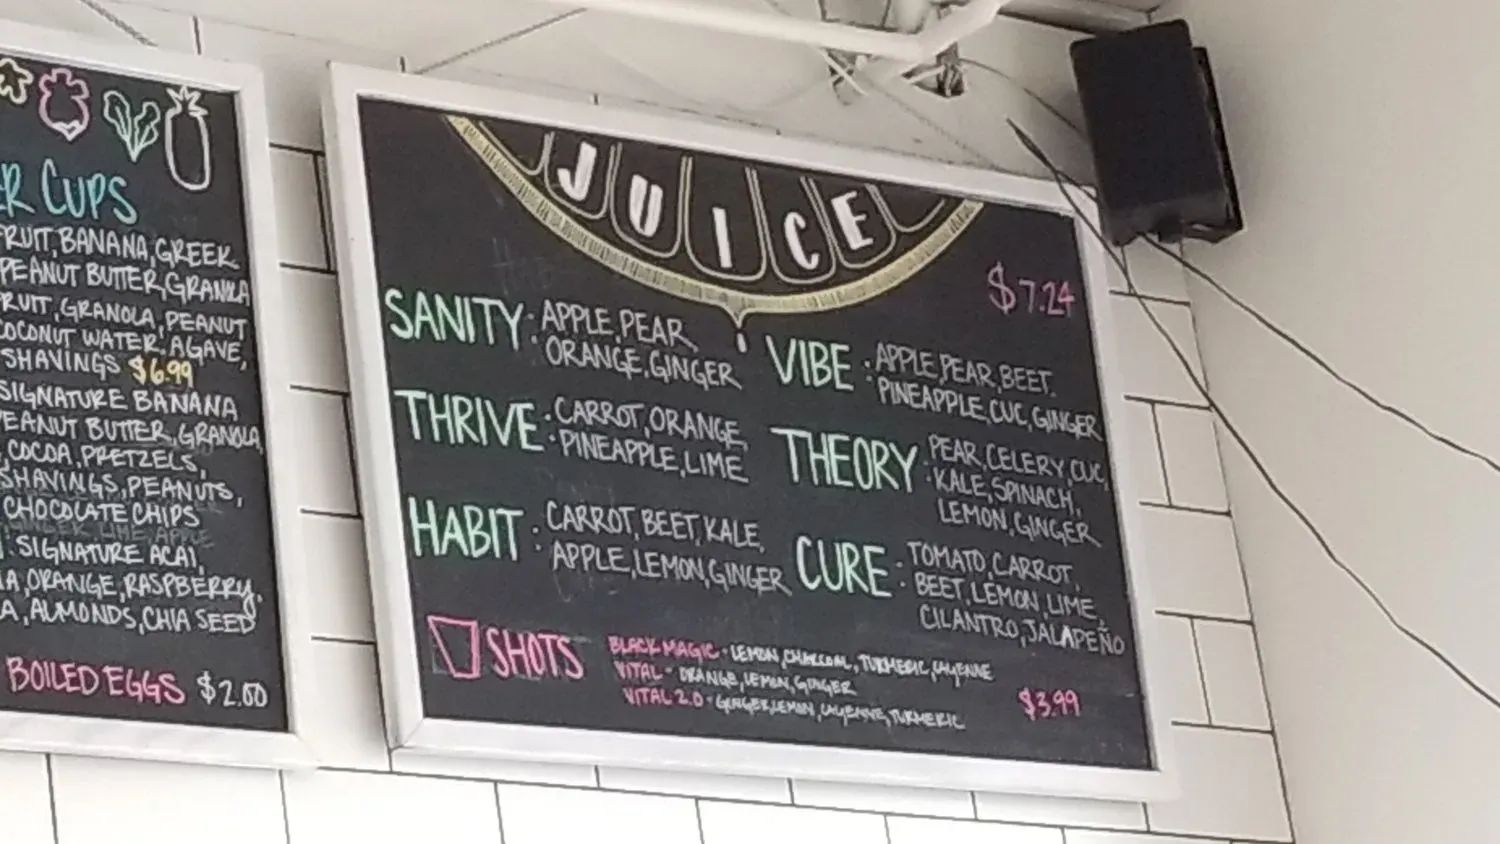 CUPS
FRUIT, BANANA, GREEK
PEANUT BUTTER, GRANOLA
FRUIT, GRANOLA, PEANUT
COCONUT WATER, AGAVE,
SHAVINGS $6.99
SIGNATURE BANANA
PEANUT BUTTER, GRANOLA,
COCOA, PRETZELS,
SHAVINGS, PEANUTS,
CHOCOLATE CHIPS
SIGNATURE ACAI,
ORANGE, RASPBERRY,
ALMONDS, CHIA SEED
BOILED EGGS $2.00
JUICE
$7.24
SANITY: APPLE, PEAR,
ORANGE, GINGER
THRIVE: CARROT, ORANGE,
PINEAPPLE, LIME
HABIT: CARROT, BEET, KALE,
APPLE, LEMON, GINGER
VIBE: APPLE, PEAR, BEET,
PINEAPPLE, CUC, GINGER
THEORY: PEAR, CELERY, CUC,
KALE, SPINACH,
LEMON, GINGER
CURE: TOMATO, CARROT,
BEET, LEMON, LIME,
CILANTRO, JALAPEÑO
SHOTS
BLACK MAGIC - LEMON, CHARCOAL, TURMERIC, CAYENNE
VITAL - ORANGE, LEMON, GINGER
VITAL 2.0 - GINGER, LEMON, CAYENNE, TURMERIC
$3.99